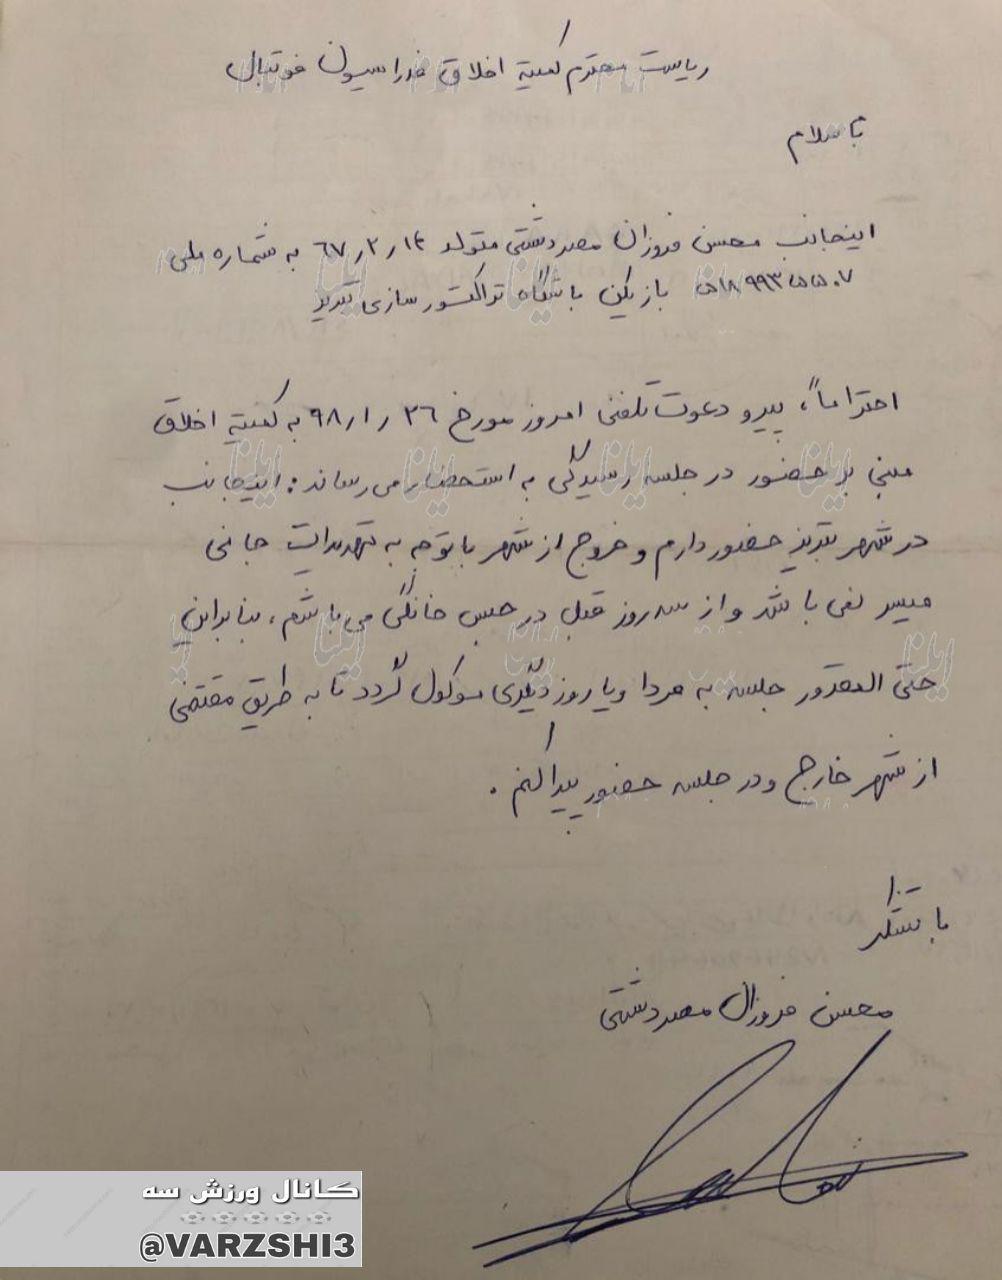 ریاست محترم کمیته اخلاق فدراسیون فوتبال
با سلام
اینجانب محسن فروزان مصردشتی متولد ۱۴ر۲ر۶۷ به شماره ملی
بازیکن باشگاه تراکتورسازی تبریز
احتراماً، پیرو دعوت تلفنی امروز مورخ ۲۶ر۱ر۹۸ به کمیته اخلاق
مبنی بر حضور در جلسه رسیدگی به استحضار می رساند: اینجانب
در شهر تبریز حضور دارم و خروج از شهر با توجه به تهدیدات جانی
میسر نمی باشد و از سه روز قبل در حبس خانگی می باشم، بنابراین
حتی المقدور جلسه به فردا و یا روز دیگری موکول گردد تا به طریق مقتضی
از شهر خارج و در جلسه حضور پیدا کنم.
با تشکر
محسن فروزان مصردشتی
کانال ورزش سه
@VARZSHI3